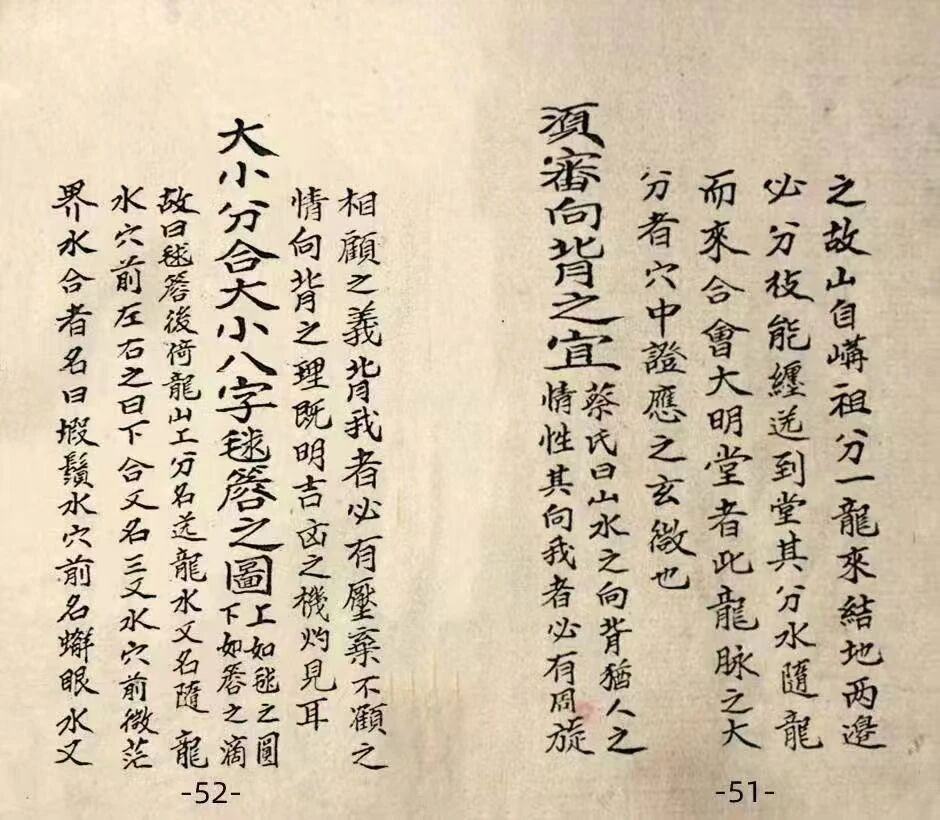 之故山自嶹祖分一龍來結地两邊
必分枝能纏送到堂其分水隨龍
而來合會大明堂者此龍脉之大
分者穴中證應之玄微也
須審向背之宜
蔡氏曰山水之向背猶人之
情性其向我者必有周旋
-51-
相顧之義背我者必有壓棄不顧之
情向背之理既明吉凶之機灼見耳
大小分合大小八字毬簷之圖
上如毬之圓
下如簷之滴
故曰毬簷後倚龍山工分名送龍水又名隨龍
水穴前左右之曰下合又名三叉水穴前微茫
界水合者名曰蝦鬚水穴前名蠏眼水又
-52-